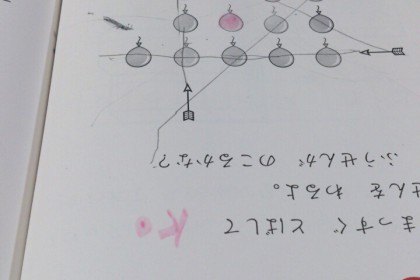 まっすぐ とばして
せんを わるよ。
ふうせんが のこるかな?